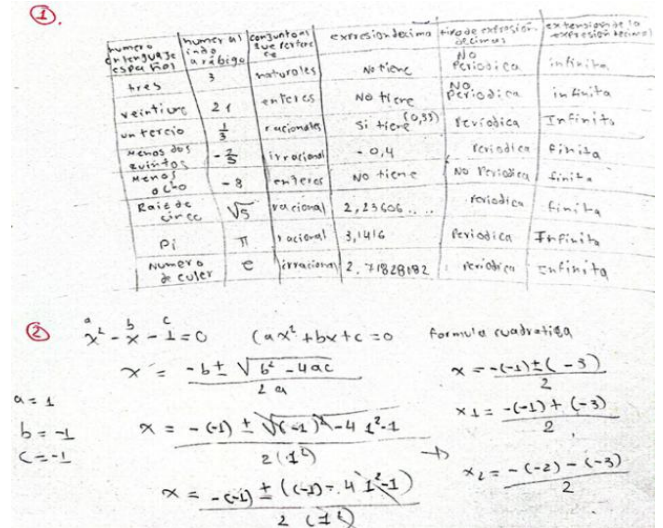 1.
numero en lenguaje español | numeral indo arábigo | conjunto al que pertenece | expresion decimal | tipo de expresión decimal | extension de la expresión decimal
tres | 3 | naturales | No tiene | No Periodica | infinita
veintiuno | 21 | enteros | No tiene | No Periodica | infinita
un tercio | 1/3 | racionales | Si tiene (0,33) | Periodica | Infinita
Menos dos quintos | -2/5 | irracional | -0,4 | Periodica | finita
Menos ocho | -8 | enteros | No tiene | No Periodica | finita
Raiz de cinco | √5 | racional | 2,23606... | Periodica | finita
Pi | π | racional | 3,1416 | Periodica | Infinita
Numero de euler | e | irracional | 2.71828182 | Periodica | Infinita
2 a b c
x² - x - 1 = 0 (ax² + bx + c = 0 formula cuadratica
x = (-b ± √(b² - 4ac)) / 2a
a = 1
b = -1
c = -1
x = (-(-1) ± √((-1)² - 4 1² - 1)) / 2(1²)
x = (-(-1) ± ((-1) - 4 1² - 1)) / 2(1²)
→
x = (-(-1) ± (-3)) / 2
x1 = (-(-1) + (-3)) / 2
x2 = (-(-2) - (-3)) / 2